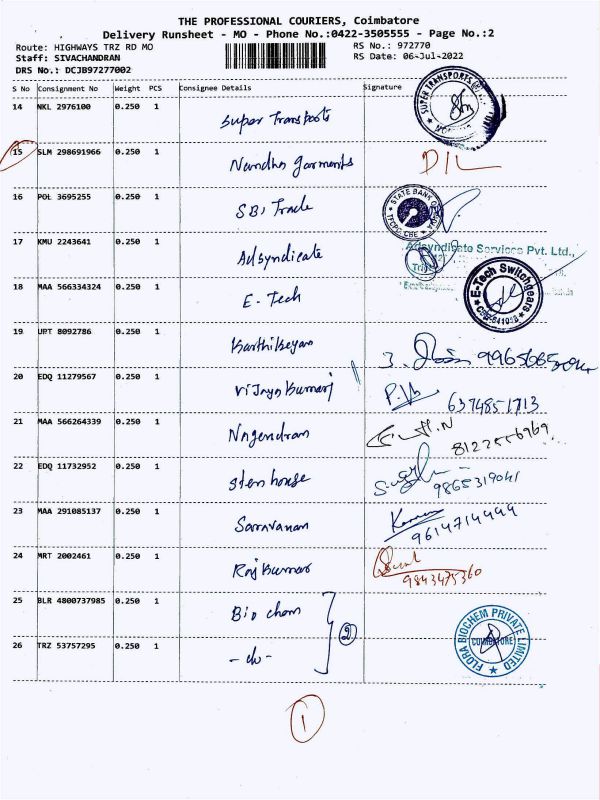 THE PROFESSIONAL COURIERS, Coimbatore
Delivery Runsheet - MO - Phone No.:0422-3505555 - Page No.:2
Route: HIGHWAYS TRZ RD MO
RS No.: 972770
Staff: SIVACHANDRAN
RS Date: 06-Jul-2022
DRS No.: DCJB97277002
S No Consignment No Weight PCS Consignee Details Signature
14 NKL 2976100 0.250 1 Super Transports
SUPER TRANSPORTS
15 SLM 298691966 0.250 1 Nandhn garments D/L
16 POL 3695255 0.250 1 SBI Trade
STATE BANK OF
TFCPC, CBE
17 KMU 2243641 0.250 1 Adsyndicate
Adsyndicate Services Pvt. Ltd.,
18 MAA 566334324 0.250 1 E-Tech
E-Tech Switchgears
19 UPT 8092786 0.250 1 Karthikeyan
20 EDQ 11279567 0.250 1 Vijaya Kumar P.Vh 6374851713
21 MAA 566264339 0.250 1 Nagendran
8122556969
22 EDQ 11732952 0.250 1 Sten house
9865319041
23 MAA 291085137 0.250 1 Saravanan
9614714444
24 MRT 2002461 0.250 1 Raj Kumar
9843475360
25 BLR 4800737985 0.250 1 Bio chem 2
26 TRZ 53757295 0.250 1 -do-
FLORA BIOCHEM PRIVATE LIMITED
COIMBATORE
1